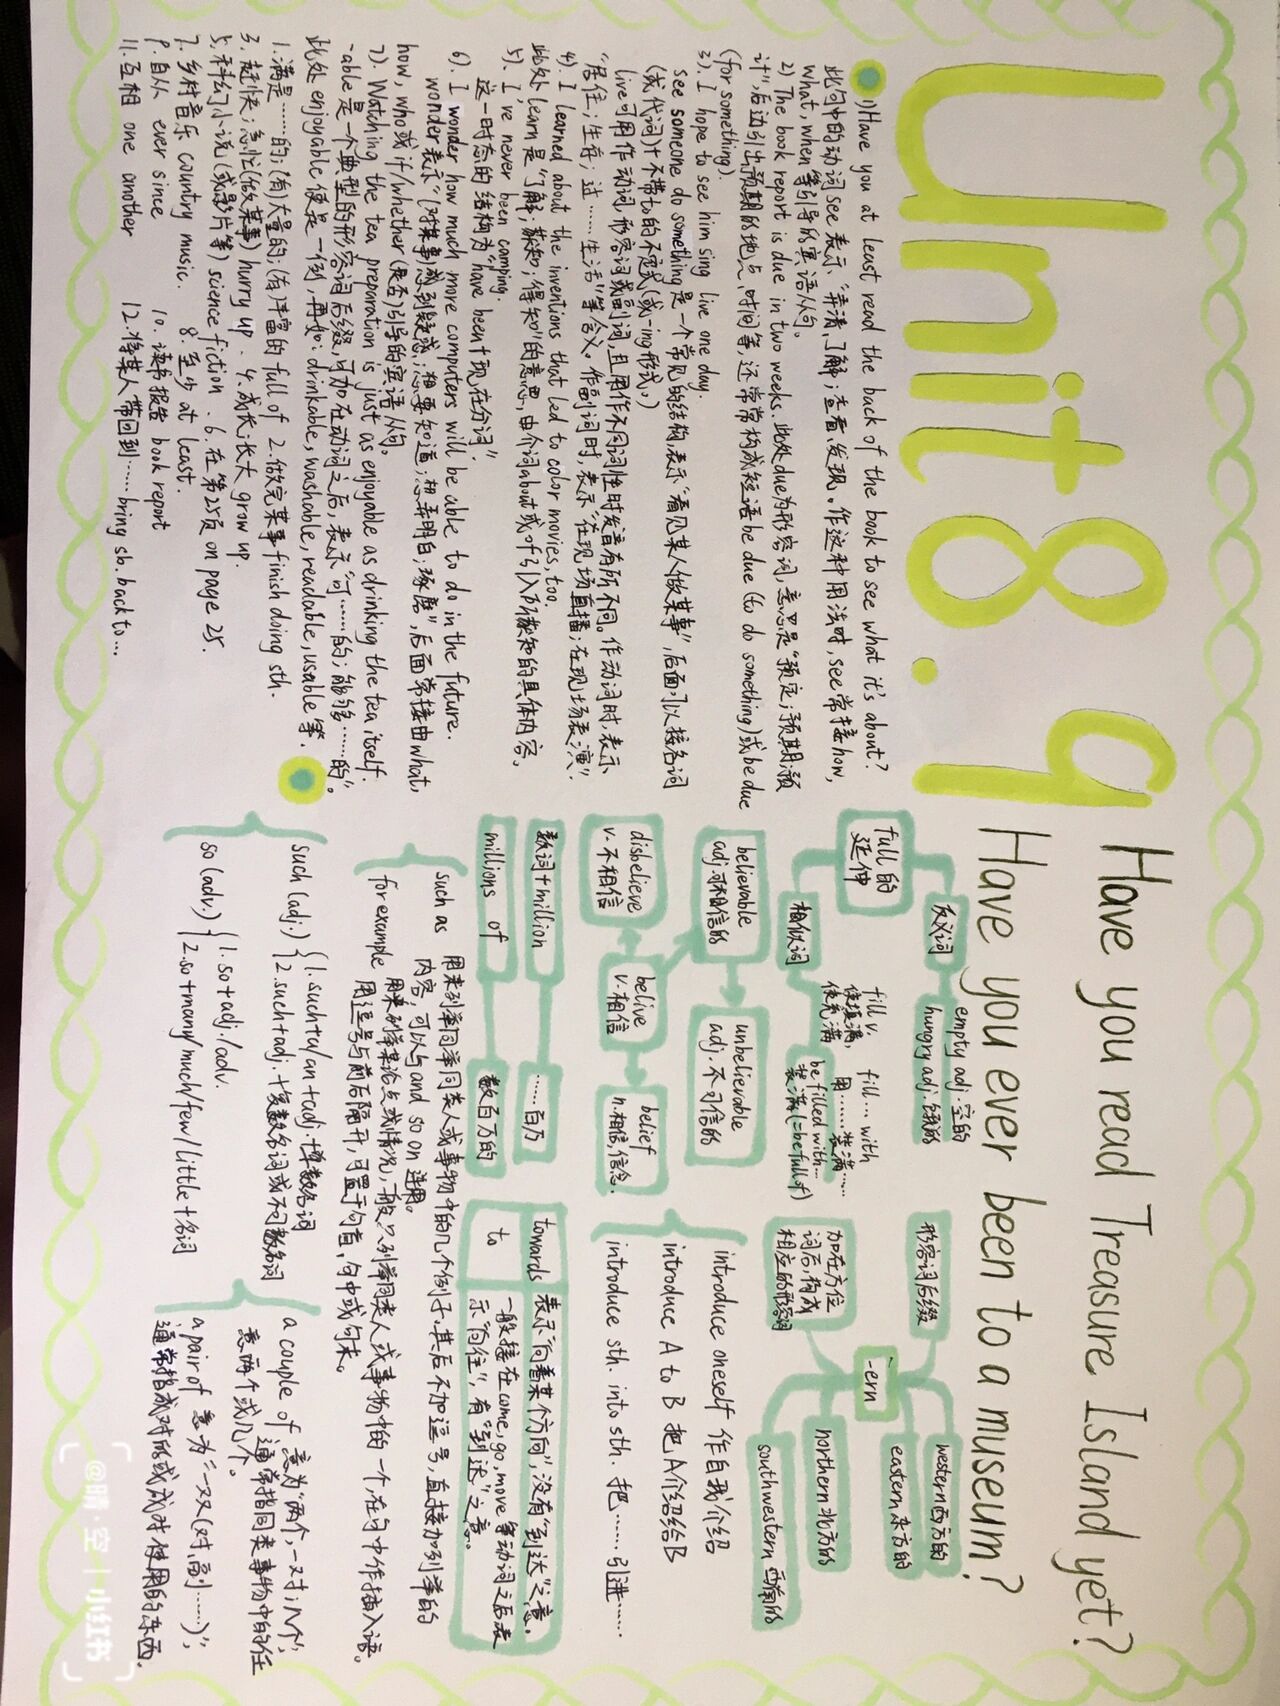 Unit 8.9
Have you read Treasure Island yet?
Have you ever been to a museum?
1) Have you at least read the back of the book to see what it's about?
此句中的动词see表示“弄清、了解;查看、发现。作这种用法时,see常接how,
what, when等引导的宾语从句。
2) The book report is due in two weeks.此处due为形容词,意思是“预定;预期;预
计”,后边引出预期的地点、时间等,还常常构成短语be due (to do something)或be due
(for something).
3). I hope to see him sing live one day.
see someone do something是一个常见的结构,表示“看见某人做某事”,后面可以接名词
(或代词)+不带to的不定式(或-ing形式。)
live可用作动词,形容词或副词,且用作不同词性时发音有所不同。作动词时,表示
“居住;生存;过……生活”等含义。作副词时,表示“在现场直播;在现场表演”.
4). I learned about the inventions that led to color movies, too.
此处learn是“了解;获知;得知”的意思,由介词about或of引入所获知的具体内容,
5). I've never been camping.
这一时态的结构为“have been+现在分词”
6). I wonder how much more computers will be able to do in the future.
wonder表示“(对某事)感到疑惑;想要知道;想弄明白;琢磨”,后面常接由what,
how, who或if/whether (是否)引导的宾语从句。
7). Watching the tea preparation is just as enjoyable as drinking the tea itself
-able是一个典型的形容词后缀,可加在动词之后,表示“可……的;能够……的”。
此处enjoyable便是一例,再如:drinkable, washable, readable, usable等.
1.满是……的;(有)大量的;(有)丰富的 full of 2.做完某事 finish doing sth.
3.赶快;急忙(做某事) hurry up. 4.成长;长大 grow up.
5.科幻小说(或影片等) science fiction. 6.在第25页 on page 25.
7.乡村音乐 country music. 8.至少 at least.
9.自从 ever since 10.读书报告 book report
11.互相 one another 12.将某人带回到…… bring sb. back to...
full的
延伸
反义词
empty adj.空的
hungry adj.饿的
相似词
fill v.
使填满,
使充满
fill...with
用……装满……
be filled with...
装满(=be full of)
believable
adj.可相信的
unbelievable
adj.不可信的
disbelieve
v.不相信
belive
v.相信
belief
n.相信,信念.
数词+million
……百万
millions of
数百万的
such as 用来列举同类人或事物中的几个例子,其后不加逗号,直接加列举的
内容,可以与and so on连用。
for example 用来列举某论点或情况,一般只列举同类人或事物中的一个,在句中作插入语。
用逗号与前后隔开,可置于句首、句中或句末。
such (adj.) 1. such+a/an+adj.+单数名词
2. such+adj.+复数名词或不可数名词
so (adv.) 1. so+adj./adv.
2. so+many/much/few/little+名词
形容词后缀
加在方位
词后,构成
相应的形容词
-ern
western西方的
eastern东方的
northern北方的
southwestern西南的
introduce oneself 作自我介绍
introduce A to B 把A介绍给B
introduce sth. into sth. 把……引进……
towards 表示“向着某个方向”,没有“到达”之意.
to 一般接在come, go, move等动词之后表
示“向/往”,有“到达”之意。
a couple of 意为“两个,一对;几个”,
通常指同类事物中的任
意两个或几个。
a pair of 意为“一双(对,副……)”,
通常指成对形或成对使用的东西.
@晴·空 | 小红书